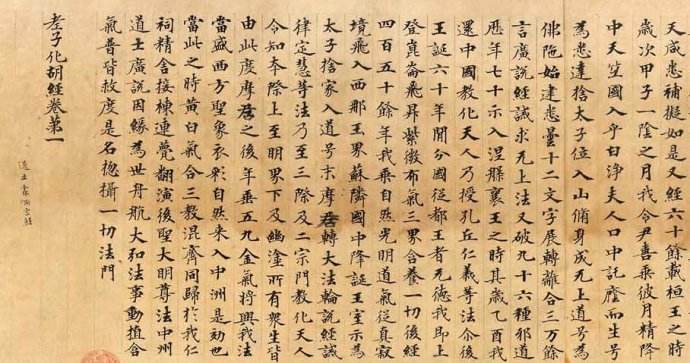 天咸悉補擬如是又經六十餘載桓王之時
歲次甲子一陰之月我令尹喜乘彼月精降
中天竺國入乎白淨夫人口中託蔭而生号
為悉達捨太子位入山脩身成无上道号為
佛陁始建悉曇十二文字展轉離合三万餘
言廣說經誡求无上法又破九十六種邪道
歷年七十示入涅槃襄王之時其歲乙酉我
還中國教化天人乃授孔丘仁義等法尒後
王誕六十年間分國從都王者无德我即上
登崑崙飛昇紫微布氣三界含養一切後經
四百五十餘年我乘自然光明道氣從真寂
境飛入西那王界蘇隣國中降誕王室示為
太子捨家入道号末摩尼轉大法輪說經誡
律定慧等法乃至三際及二宗門教化天人
令知本際上至明界下及幽塗所有眾生皆
由此度摩尼之後年垂五九金氣將興我法
當盛西方聖象衣彩自然來入中洲是効也
當此之時黄白氣合三教混齊同歸於我仁
祠精舍接棟連甍翻演後聖大明尊法中州
道士廣說因緣為世舟航大弘法事動植含
氣普皆救度是名惣攝一切法門
老子化胡經卷第一
道士索洞玄經